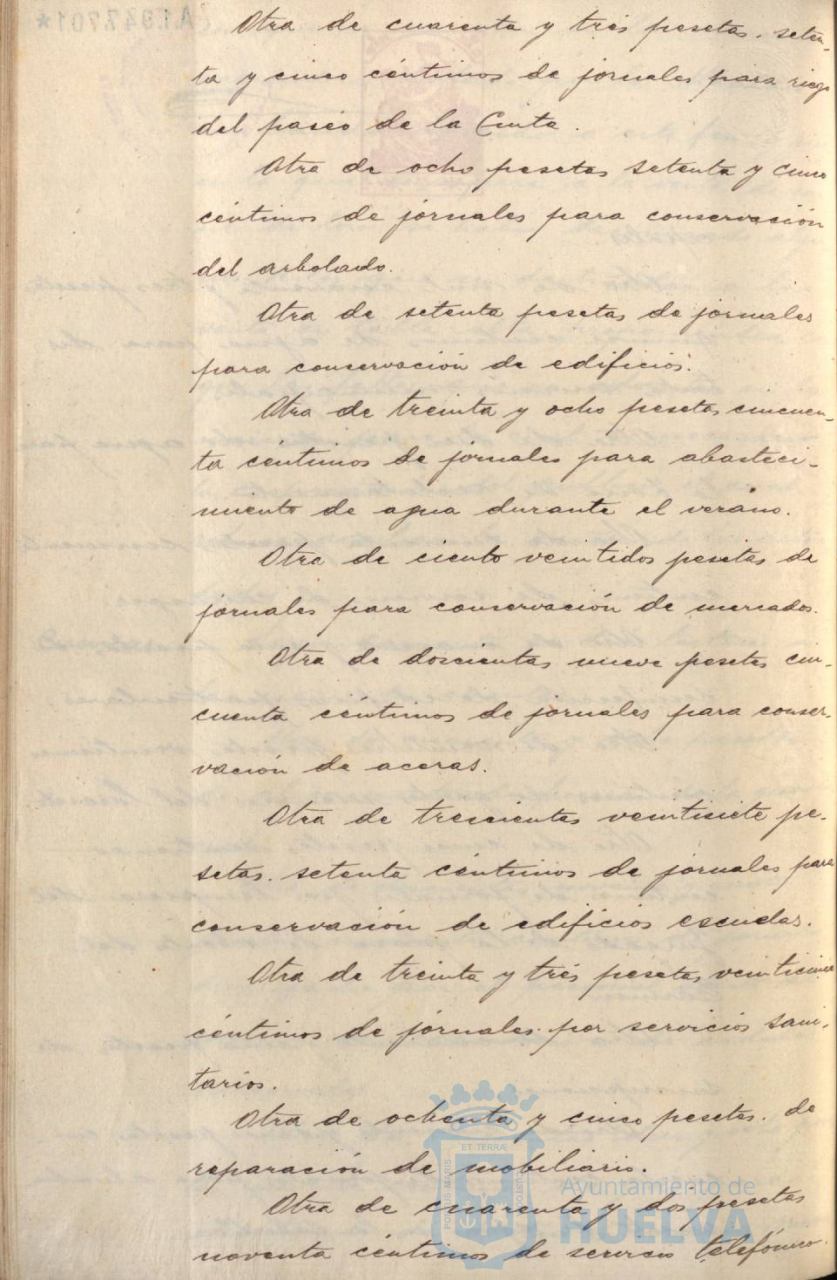 Otra de cuarenta y tres pesetas seten-
ta y cinco céntimos de jornales para riego
del paseo de la Cinta.
Otra de ocho pesetas setenta y cinco
céntimos de jornales para conservación
del arbolado.
Otra de setenta pesetas de jornales
para conservación de edificios.
Otra de treinta y ocho pesetas cincuen-
ta céntimos de jornales para abasteci-
miento de agua durante el verano.
Otra de ciento veintidos pesetas de
jornales para conservación de mercados.
Otra de doscientas nueve pesetas cin-
cuenta céntimos de jornales para conser-
vación de aceras.
Otra de trescientas veintisiete pe-
setas setenta céntimos de jornales para
conservación de edificios escuelas.
Otra de treinta y tres pesetas veinticinco
céntimos de jornales por servicios sani-
tarios.
Otra de ochenta y cinco pesetas de
reparación de mobiliario.
Otra de cuarenta y dos pesetas
noventa céntimos de servicio telefónico.
A1.947.701*
ET TERRÆ
PORTUS MARIS
CUSTODIA
Ayuntamiento de
HUELVA